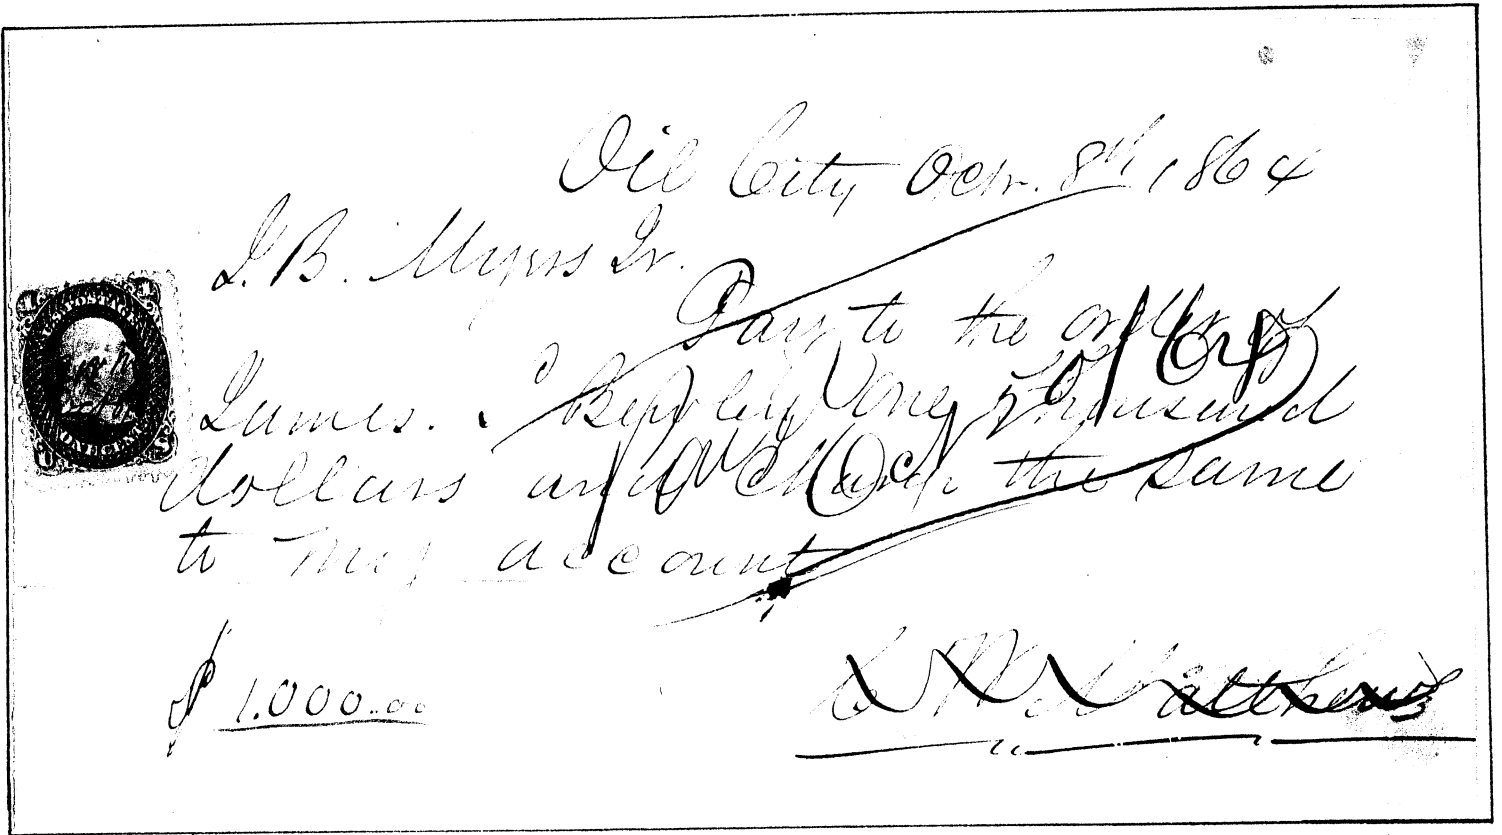 Oil City Octr. 8th, 1864
J. B. Myers Jr.
Pay to the order of
James. One Thousand
dollars and charge the same
to my account
$ 1.000.00
Matthews
U.S. POSTAGE